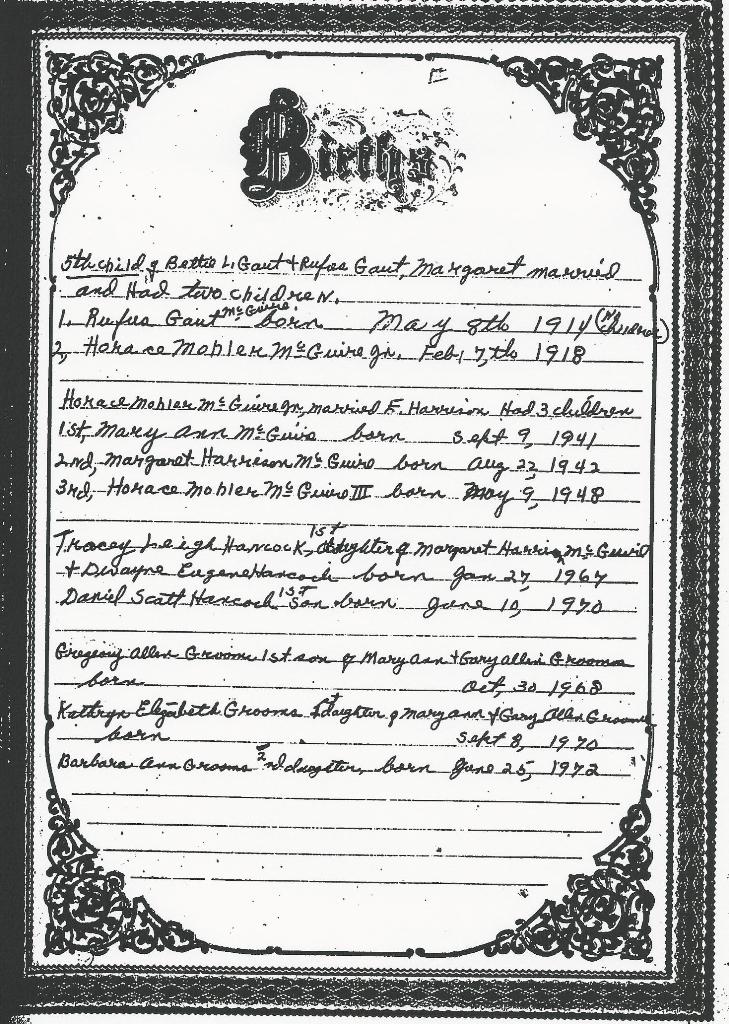 Births
5th child of Bettie L. Gaut + Rufus Gaut, Margaret married
and Had two children.
1. Rufus Gaut McGuire born May 8th 1914 (No children)
2, Horace Mohler McGuire Jr. Feb, 7,th 1918
Horace Mohler McGuire Jr, married F. Harrison Had 3 children
1st, Mary Ann McGuire born Sept 9, 1941
2nd, Margaret Harrison McGuire born Aug 22, 1942
3rd, Horace Mohler McGuire III born May 9, 1948
Tracey Leigh Hancock, 1st daughter of Margaret Harrison McGuire
+ Dwayne Eugene Hancock born Jan 27, 1967
Daniel Scatt Hancock 1st son born June 10, 1970
Gregeory Allen Grooms 1st son of Mary Ann + Gary Allen Grooms
born Oct, 30 1968
Kathryn Elizabeth Grooms 1st daughter of Mary Ann + Gary Allen Grooms
born Sept 8, 1970
Barbara Ann Grooms 2nd daughter, born June 25, 1972